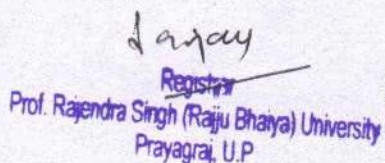 Registrar
Prof. Rajendra Singh (Rajju Bhaiya) University
Prayagraj, U.P